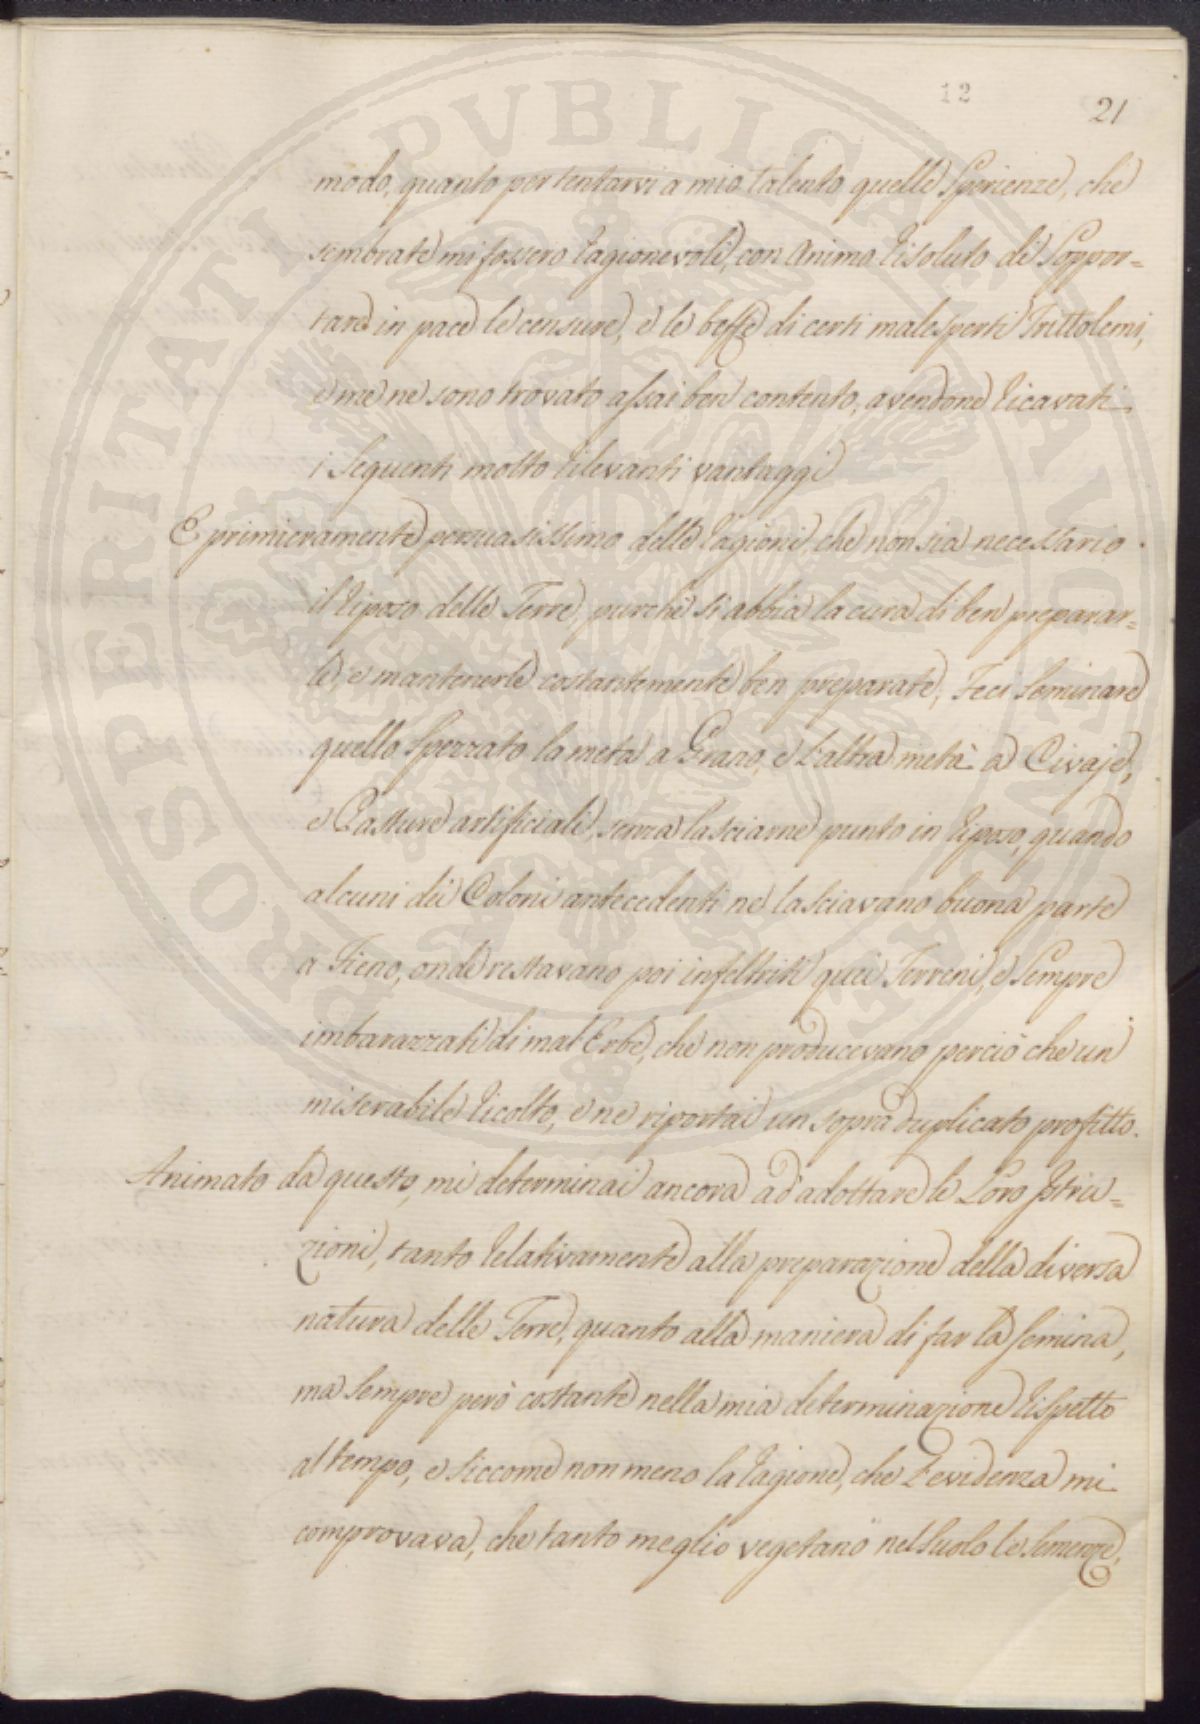 12
21
modo, quanto per tentarvi a mio talento quelle Sperienze, che
sembrate mi fossero ragionevoli, con animo risoluto di Soppor=
tare in pace le censure, e le beffe di certi malesperti Trittolemi,
e me ne sono trovato assai ben contento, avendone ricavati
i Seguenti molto rilevanti vantaggi
E primieramente persuasissimo delle ragioni, che non sia necessario
il riposo delle Terre, purchè si abbia la cura di ben preparar=
le, e mantenerle costantemente ben preparate, Feci Seminare
quello Spezzato la metà a Grano, e l'altra metà a Civaje,
e Pasture artificiali, senza lasciarne punto in riposo, quando
alcuni dei Coloni antecedenti ne lasciavano buona parte
a Fieno, onde restavano poi infeltriti quei Terreni, e Sempre
imbarazzati di mal Erbe, che non producevano perciò che un
miserabile ricolto, e ne riportai un sopra duplicato profitto.
Animato da questo, mi determinai ancora ad adottare le Loro Istru=
zioni, tanto relativamente alla preparazione della diversa
natura delle Terre, quanto alla maniera di far la Semina,
ma Sempre però costante nella mia determinazione rispetto
al tempo, e Siccome non meno la ragione, che l'evidenza mi
comprovava, che tanto meglio vegetano nel Suolo le Semenze,
PROSPERITATI PUBLICAE AUGENDAE